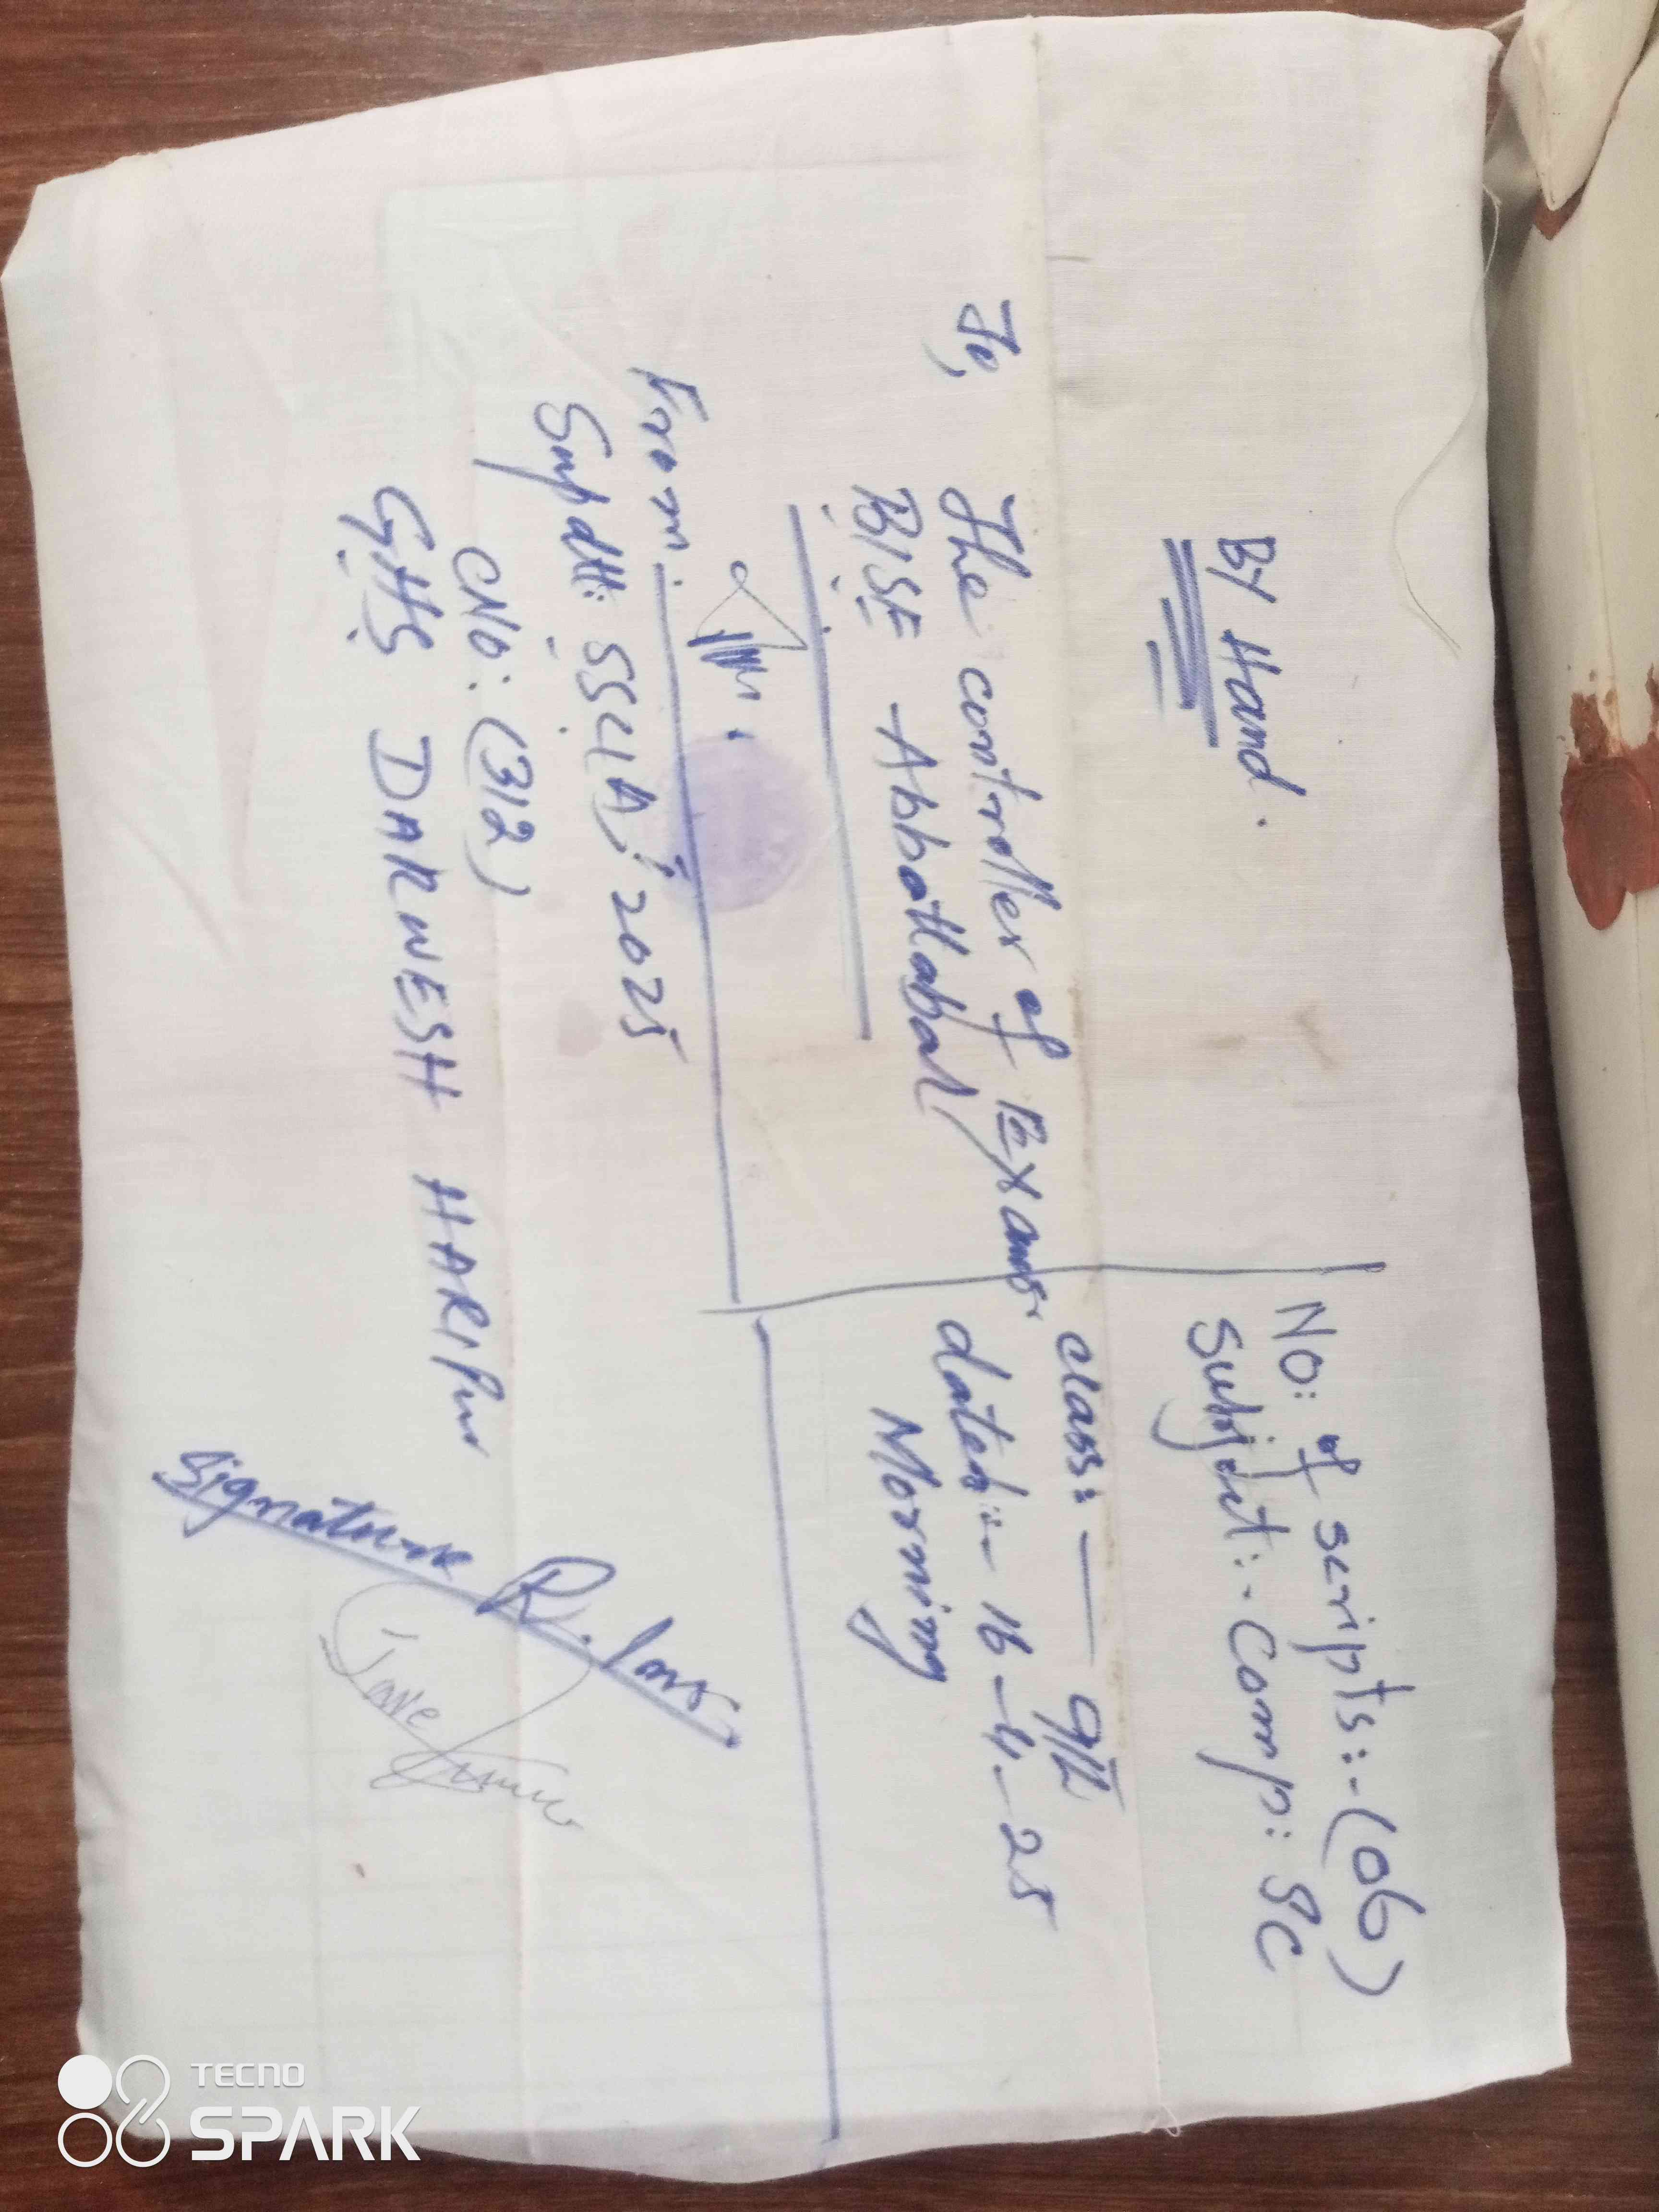 By Hand.
No: of scripts:-(06)
Subject:- Comp: Sc
class:— 9th
dated:- 16-4-25
Morning
To,
The controller of Exams.
BISE Abbottabad
From:
Supdtt: SSC(A), 2025
CNo: (312)
GHS DARWESH HARIPur
Signature R.
TECNO
SPARK